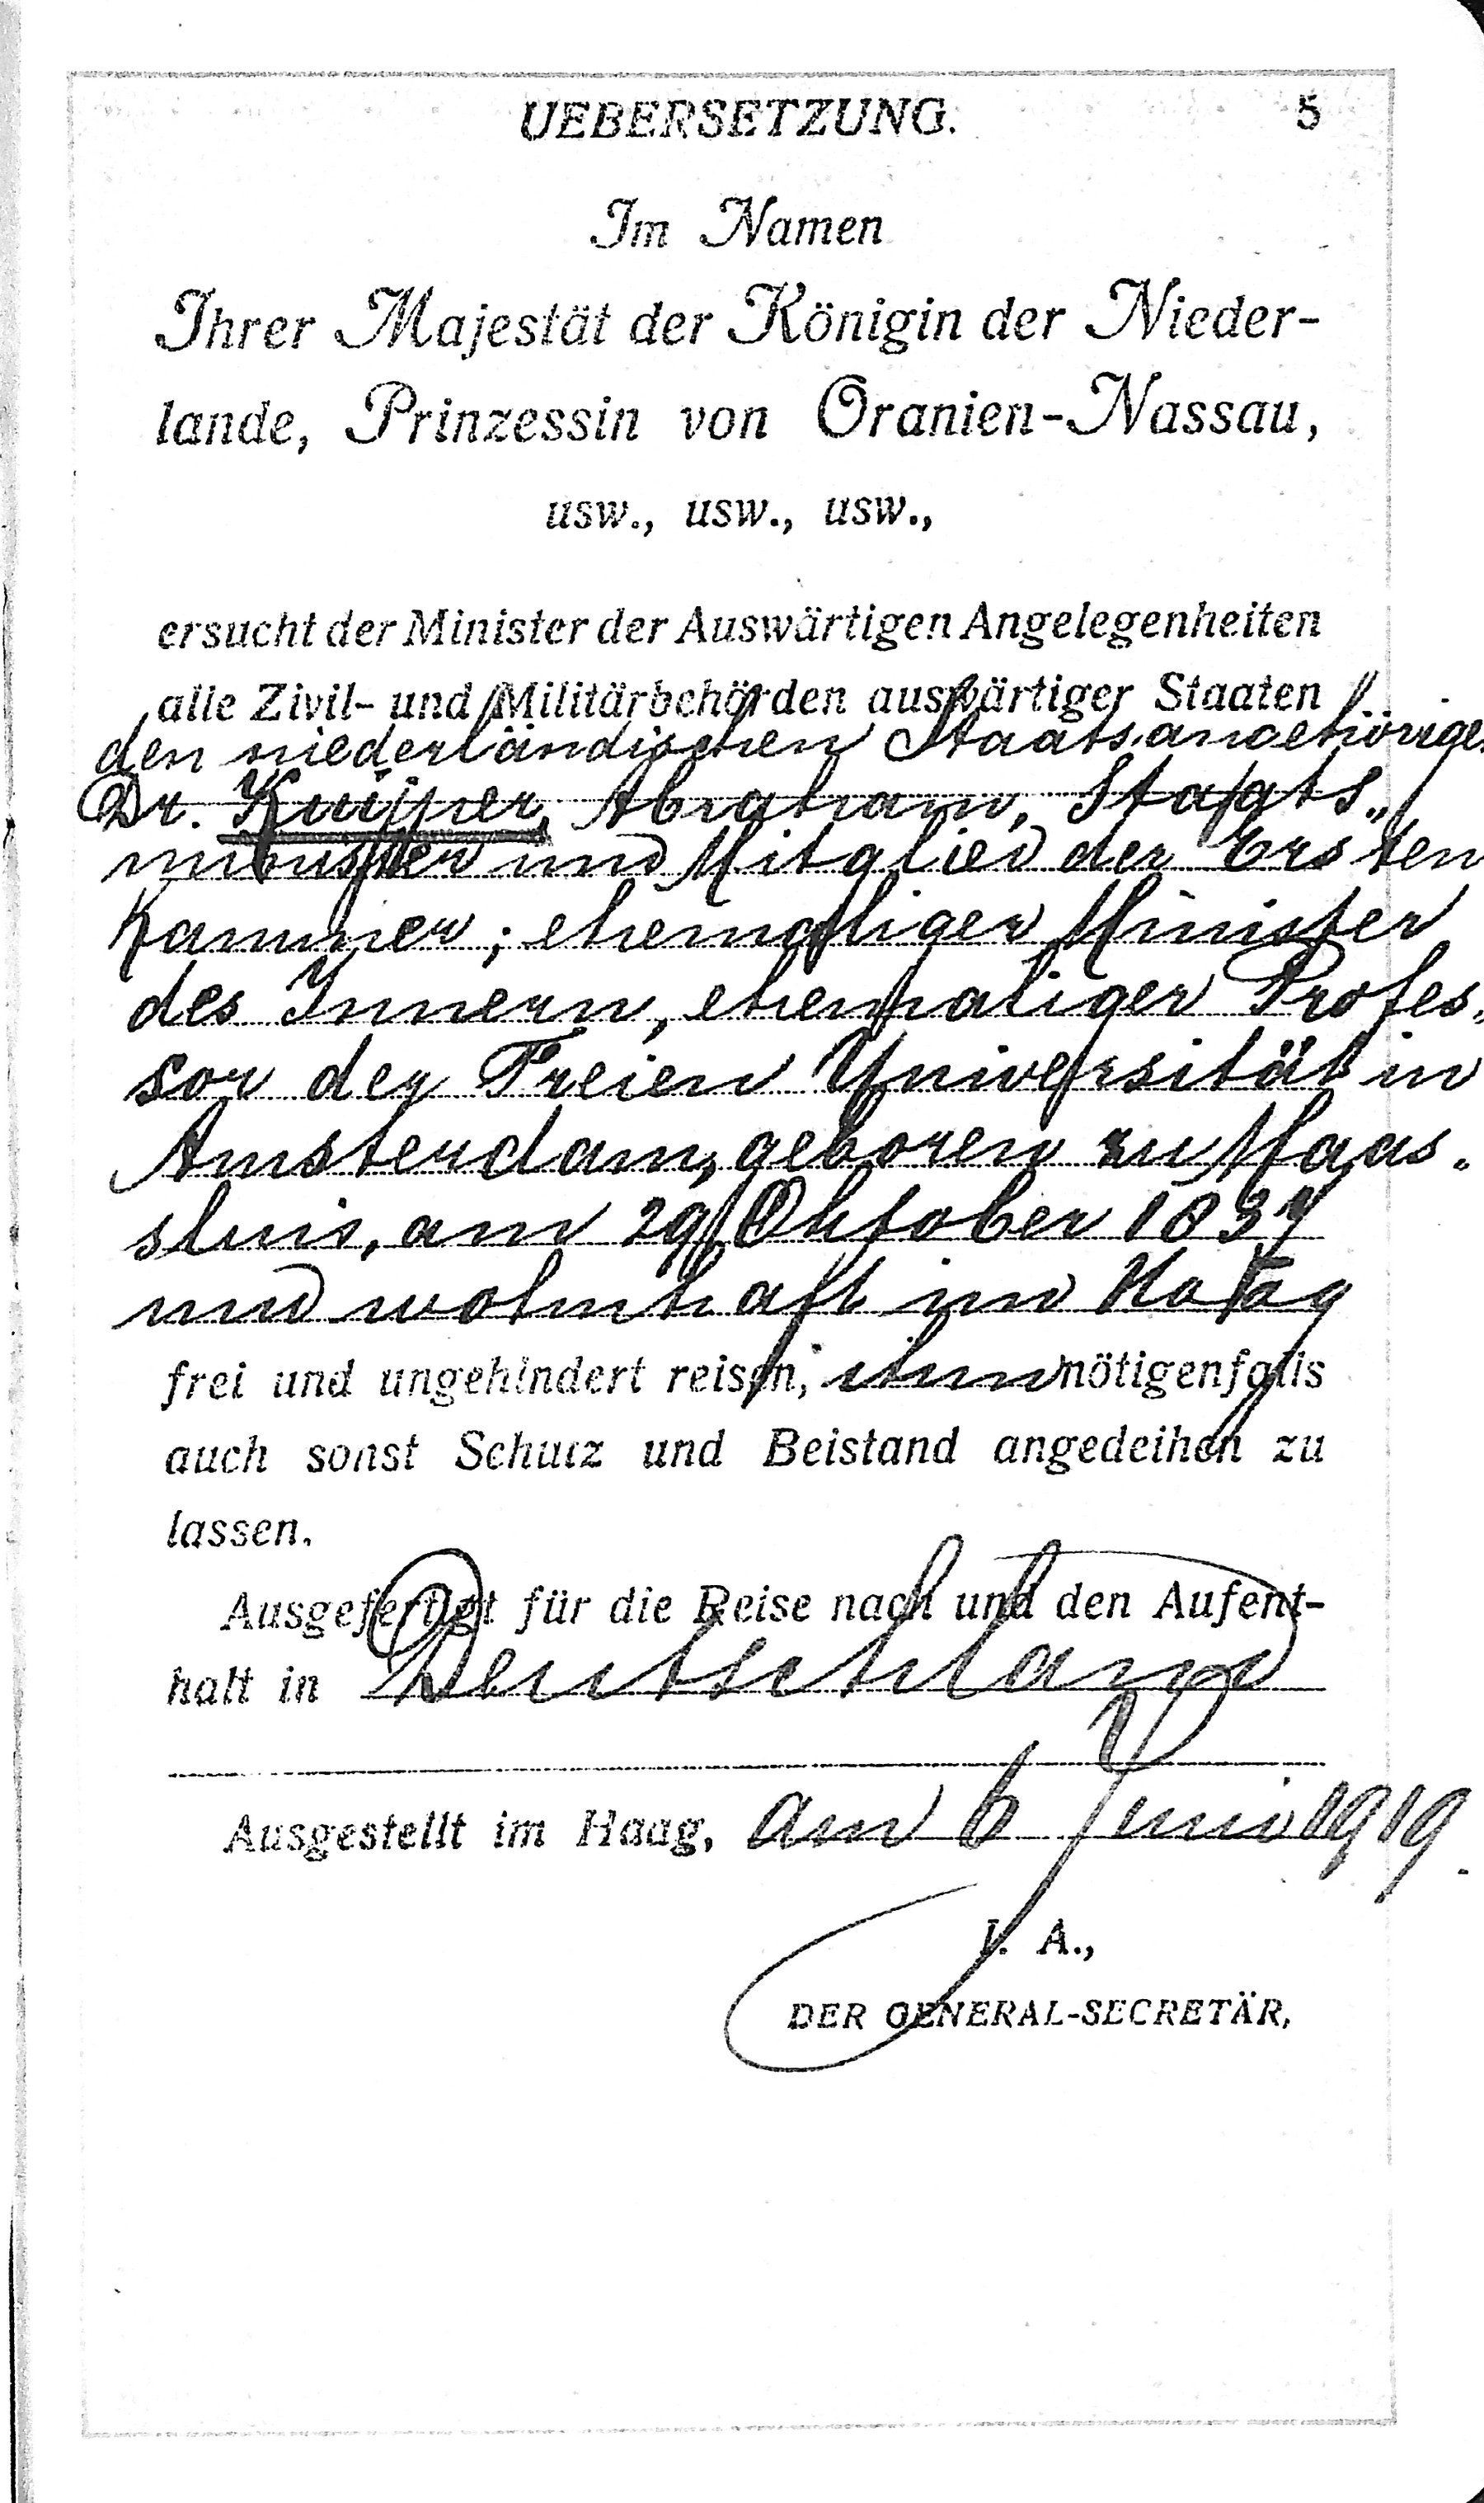 UEBERSETZUNG. 5
Im Namen
Ihrer Majestät der Königin der Nieder-
lande, Prinzessin von Oranien-Nassau,
usw., usw., usw.,
ersucht der Minister der Auswärtigen Angelegenheiten
alle Zivil- und Militärbehörden auswärtiger Staaten
den niederländischen Staatsangehörigen
Dr. Kuijper, Abraham, Staats-
minister und Mitglied der Ersten
Kammer; ehemaliger Minister
des Innern, ehemaliger Profes-
sor der Freien Universität in
Amsterdam, geboren zu Maas-
sluis, am 29 Oktober 1837
und wohnhaft im Haag
frei und ungehindert reisen, ihm nötigenfalls
auch sonst Schutz und Beistand angedeihen zu
lassen.
Ausgefertigt für die Reise nach und den Aufent-
halt in Deutschland
Ausgestellt im Haag, am 6 Juni 1919.
V. A.,
DER GENERAL-SECRETÄR,